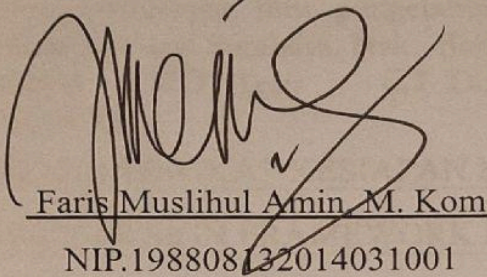 Faris Muslihul Amin, M. Kom
NIP.198808132014031001